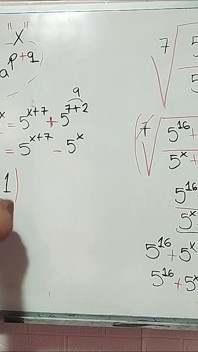 "x"
a^{p+q}
x = 5^{x+7} + 5^{7+2}
9
= 5^{x+7} - 5^x
1
7
5
5
7
5^{16}
5^x +
5^{16}
5^x
5^{16} + 5^x
5^{16} + 5^x